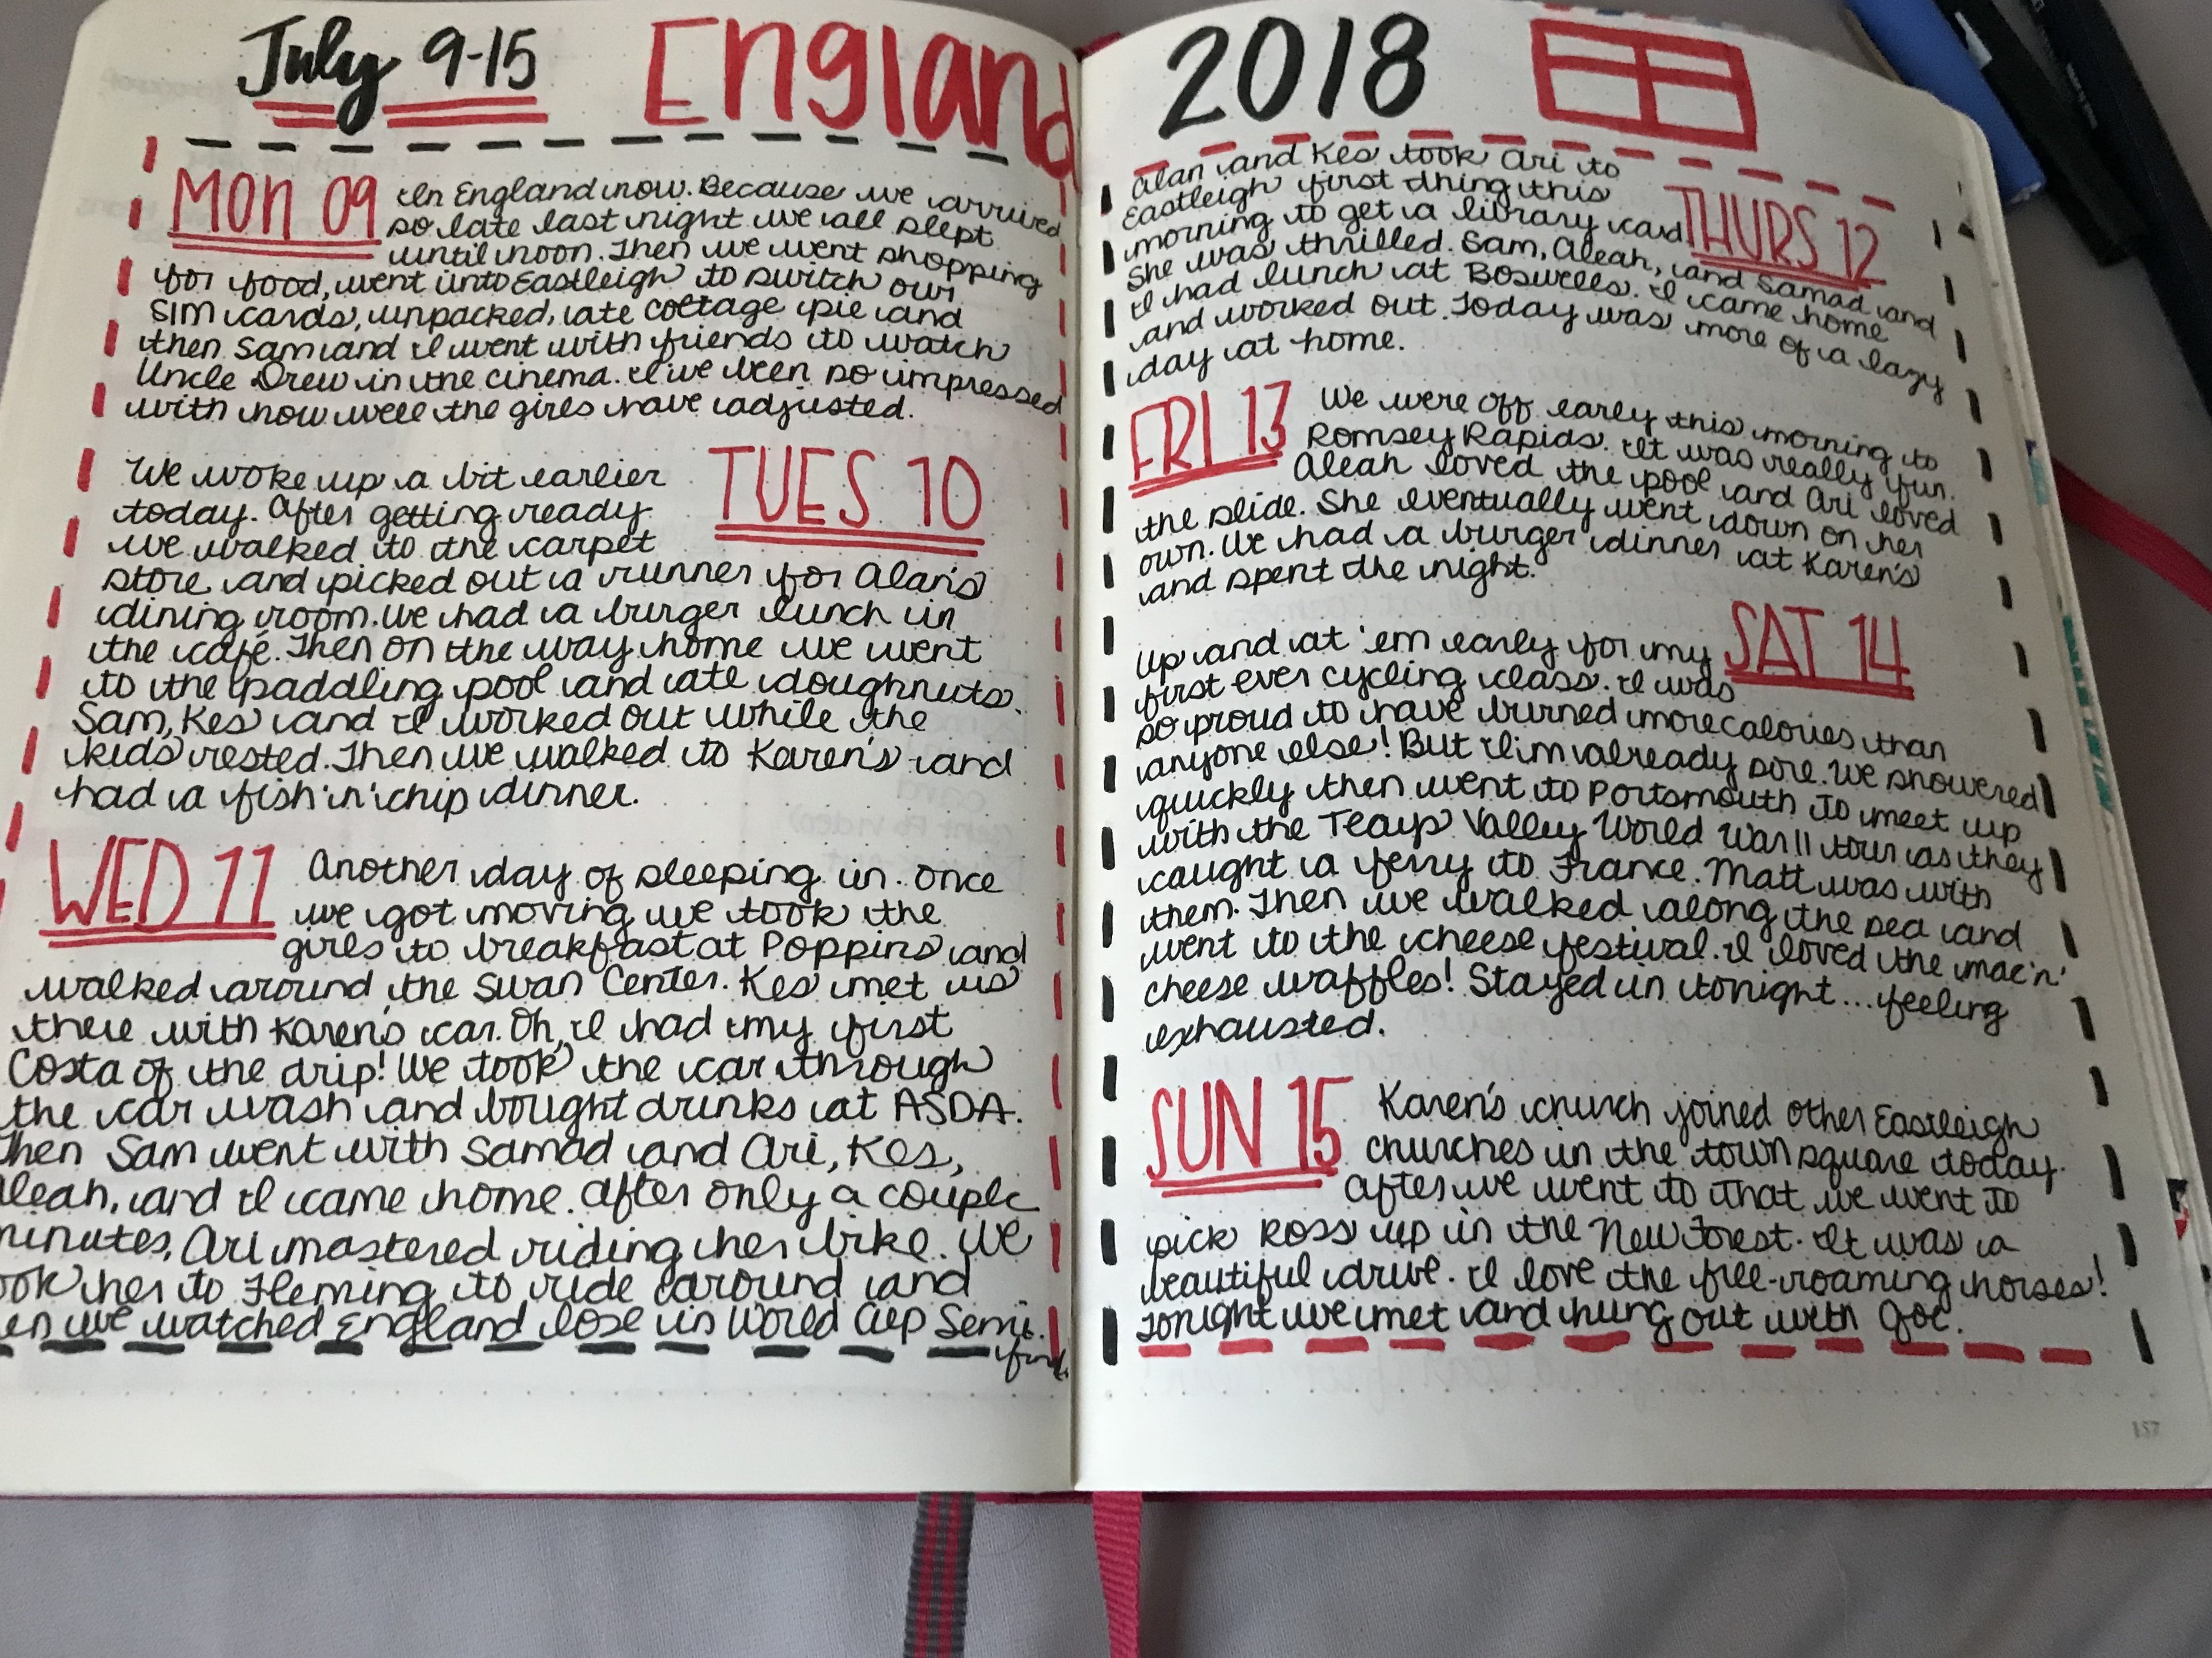 July 9-15 England
MON 09
In England now. Because we arrived
so late last night we all slept
until noon. Then we went shopping
for food, went into Eastleigh to switch our
SIM cards, unpacked, ate cottage pie and
then Sam and I went with friends to watch
Uncle Drew in the cinema. I've been so impressed
with how well the girls have adjusted.
TUES 10
We woke up a bit earlier
today. After getting ready
we walked to the carpet
store and picked out a runner for Alan's
dining room. We had a burger lunch in
the café. Then on the way home we went
to the paddling pool and ate doughnuts.
Sam, Kes and I worked out while the
kids rested. Then we walked to Karen's and
had a fish 'n' chip dinner.
WED 11
Another day of sleeping in. Once
we got moving we took the
girls to breakfast at Poppins and
walked around the Swan Center. Kes met us
there with Karen's car. Oh, I had my first
Costa of the drip! We took the car through
the car wash and bought drinks at ASDA.
Then Sam went with Samad and Ari, Kes,
leah, and I came home. After only a couple
minutes, Ari mastered riding her bike. We
ook her to Fleming to ride around and
en we watched England lose in World Cup Semi-
2018
THURS 12
Alan and Kes took Ari to
Eastleigh first thing this
morning to get a library card
She was thrilled. Sam, Aleah, and Samad and
I had lunch at Boswells. I came home
and worked out. Today was more of a lazy
day at home.
FRI 13
We were off early this morning to
Romsey Rapids. It was really fun.
Aleah loved the pool and Ari loved
the slide. She eventually went down on her
own. We had a burger dinner at Karen's
and spent the night.
SAT 14
Up and at 'em early for my
first ever cycling class. I was
so proud to have burned more calories than
anyone else! But I'm already sore. We showered
quickly then went to Portsmouth to meet up
with the Teays Valley World War II tour as they
caught a ferry to France. Matt was with
them. Then we walked along the sea and
went to the cheese festival. I loved the mac 'n'
cheese waffles! Stayed in tonight... feeling
exhausted.
SUN 15
Karen's church joined other Eastleigh
churches in the town square today.
After we went to that we went to
pick Ross up in the New Forest. It was a
beautiful drive. I love the free-roaming horses!
Tonight we met and hung out with Joe.
157